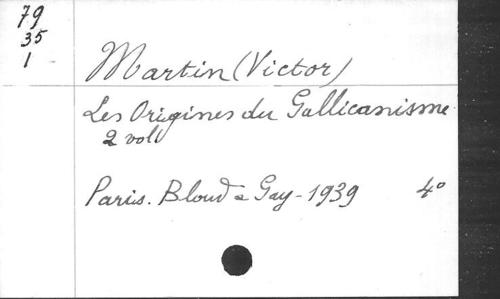 79
35
1
Martin (Victor)
Les Origines du Gallicanisme.
2 vol
Paris. Bloud & Gay - 1939 4º